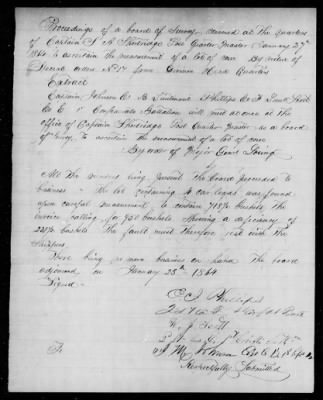 Proceedings of a board of Survey, convened at the quarters
of Captain S. A. Shortridge Post Quarter Master January 27th
1864 to ascertain the measurement of a lot of corn By virtue of
Special order No 17 from Division Head Quarters
Extract
Captain Johnson Co B. Lieutenant Phillips Co F
Co E 1st Confederate Battalion will meet at once at the
office of Captain Shortridge Post Quarter Master as a board
of Survey, to ascertain the measurement of a lot of corn
By order of Major Genl Loring
All the members being present the board proceeded to
business - the lot containing 4 car loads was found
upon careful measurement, to contain bushels the
invoice calling for 920 bushels showing a deficiency of
bushels the fault must therefore rest with the
Shippers
There being no more business on hand the board
adjourned on January 28th 1864
Signed -
C. J. Phillips
1st Lieut Co F
W. J.
2 Lt Co
J. M. Johnson Capt Co B 1st
Respectfully Submitted